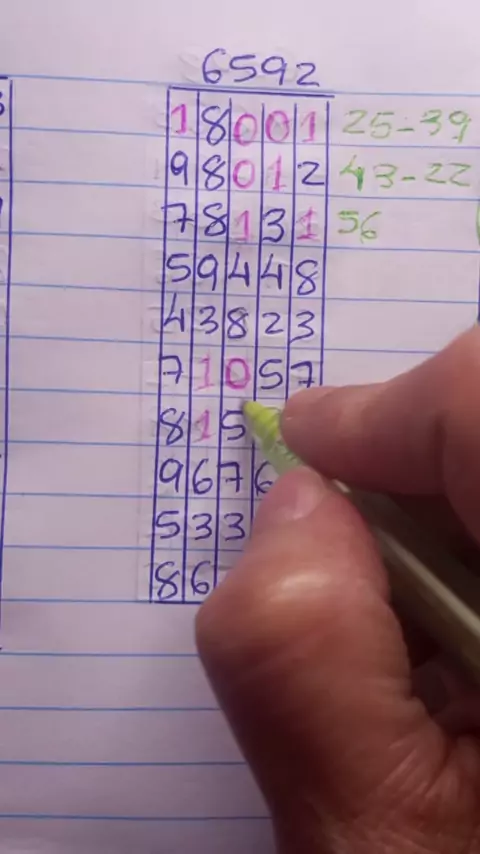 6592
1 8 0 0 1 25-39
9 8 0 1 2 43-22
7 8 1 3 1 56
5 9 4 4 8
4 3 8 2 3
7 1 0 5 7
8 1 5
9 6 7 6
5 3 3
8 6